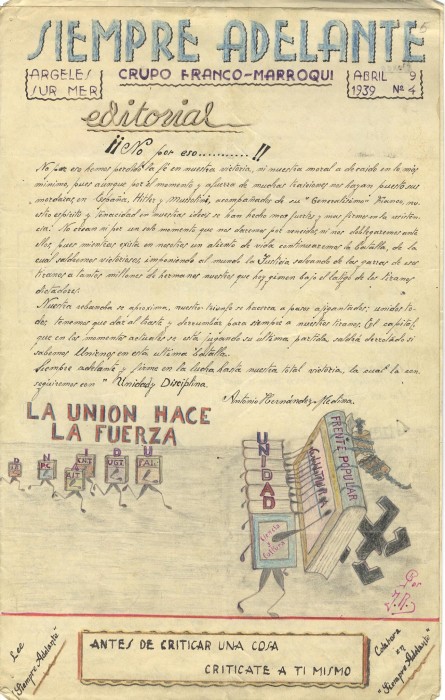 SIEMPRE ADELANTE
ARGELES
SUR MER
GRUPO FRANCO-MARROQUI
ABRIL 9
1939 Nº 4
editorial
¡¡No por eso..........!!
No por eso hemos perdido la fé en nuestra victoria, ni nuestra moral a decaido en lo más
minimo, pues aunque por el momento y afuerza de muchas traiciones nos hayan puesto sus
mordazas, en España, Hitler y Musholini, acompañados de su "Generalisimo" Franco, nu-
estro espiritu y tenacidad en nuestras ideas se han hecho mas fuertes y mas firmes en la existen-
cia! No crean ni por un solo momento que nos daremos por vencidos, ni nos doblegaremos ante
ellos, pues mientras exista en nosotros un aliento de vida continuaremos la batalla, de la
cual saldremos victoriosos, imponiendo al mundo la Justicia salvando de las garras de sus
tiranos a tantos millones de hermanos nuestros que hoy gimen bajo el latigo de los tiranos
dictadores.
Nuestra revancha se aproxima, nuestro triunfo se hacerca a pasos ajigantados; unidos to-
dos, tenemos que dar al traste y derrumbar para siempre a nuestros tiranos. El capital,
que en los momentos actuales se está jugando su ultima partida, saldrá derrotado si
sabemos Unirnos en esta ultima batalla.
Siempre adelante y firme en la lucha hasta nuestra total victoria, la cual la con-
seguiremos con "Unidad y Disciplina.
Antonio Hernández-Medina.
LA UNION HACE
LA FUERZA
U N I D U
PC
CNT
UGT
UNIDAD
CULTURA
FRENTE POPULAR
Por
J.R.
Lee
"Siempre Adelante"
ANTES DE CRITICAR UNA COSA
CRITICATE A TI MISMO
Colabora
en
"Siempre Adelante"